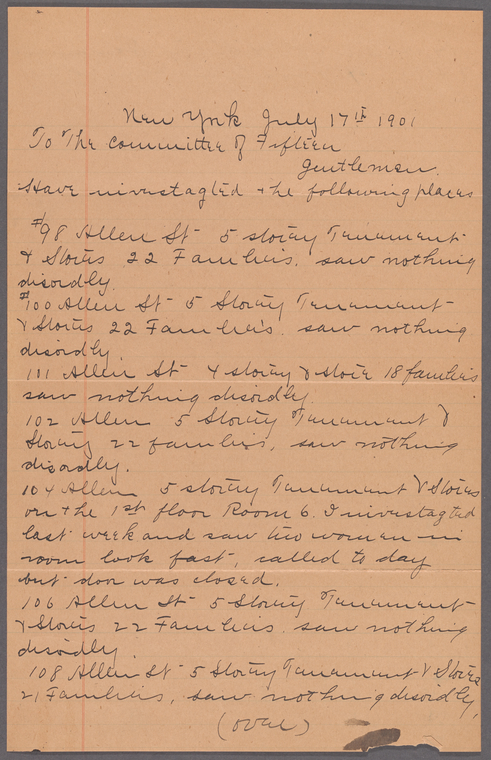 New York July 17th 1901
To The Committee of Fifteen
Gentlemen.
Have nivestagted the following places
#98 Allen St 5 storey Tenament
& Stores 22 Families. saw nothing
disordly.
#100 Allen St 5 Storey Tenament
& Stores 22 Families. saw nothing
disordly.
101 Allen St 4 storey & store 18 families
saw nothing disordly.
102 Allen 5 Storey Tenament &
Storey 22 families, saw nothing
disordly.
104 Allen 5 storey Tenament & Stores
on the 1st floor Room 6. I nivestagted
last week and saw two women in
room look fast, called to day
but door was closed.
106 Allen St 5 Storey Tenament
& Stores 22 Families. saw nothing
disordly.
108 Allen St 5 Storey Tenament & Stores
21 Families, saw nothing disordly,
(over)